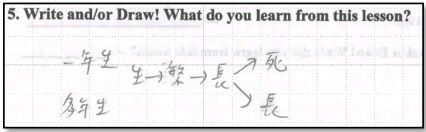 5. Write and/or Draw! What do you learn from this lesson?
一年生
多年生
生→繁→長↗死
↘長